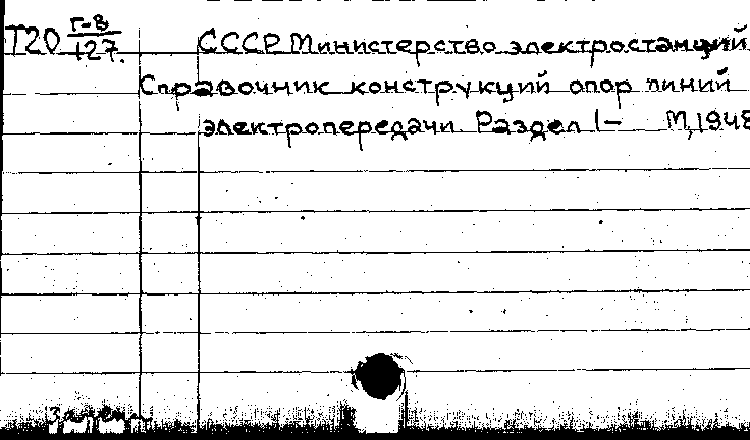 Т20 Г-8/127. СССР Министерство электростанций
Справочник конструкций опор линий
электропередачи. Раздел I- М, 1948